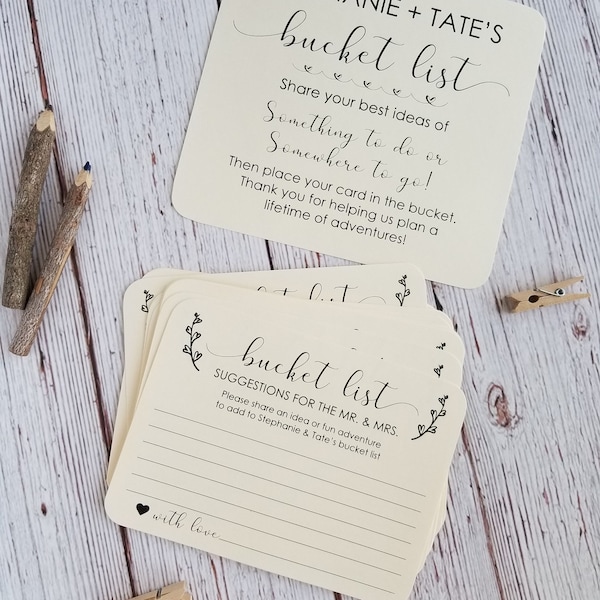 ANIE + TATE'S
bucket list
Share your best ideas of
Something to do or
Somewhere to go!
Then place your card in the bucket.
Thank you for helping us plan a
lifetime of adventures!
bucket list
bucket list
SUGGESTIONS FOR THE MR. & MRS.
Please share an idea or fun adventure
to add to Stephanie & Tate's bucket list
with love